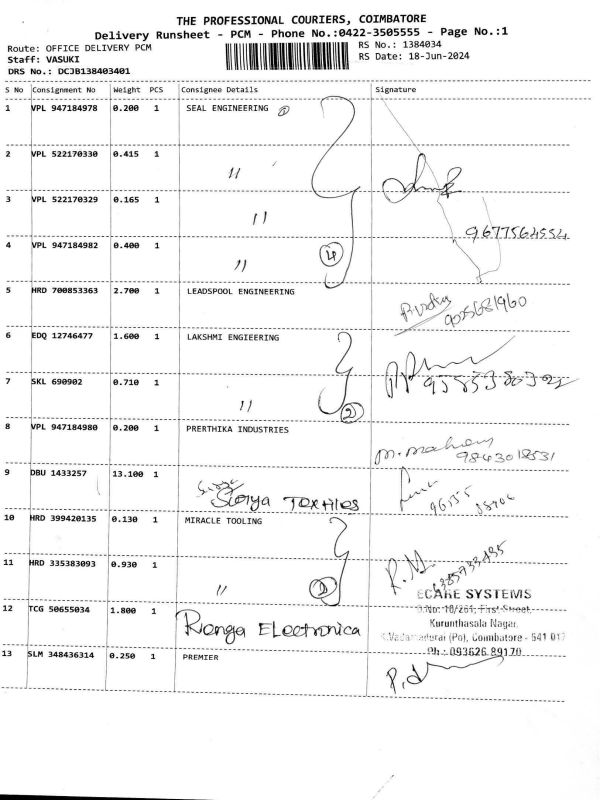 THE PROFESSIONAL COURIERS, COIMBATORE
Delivery Runsheet - PCM - Phone No.:0422-3505555 - Page No.:1
Route: OFFICE DELIVERY PCM
RS No.: 1384034
Staff: VASUKI
RS Date: 18-Jun-2024
DRS No.: DCJB138403401
S No Consignment No Weight PCS Consignee Details Signature
1 VPL 947184978 0.200 1 SEAL ENGINEERING
2 VPL 522170330 0.415 1 "
3 VPL 522170329 0.165 1 "
9677564554
4 VPL 947184982 0.400 1 " 4
5 HRD 700853363 2.700 1 LEADSPOOL ENGINEERING
9025681960
6 EDQ 12746477 1.600 1 LAKSHMI ENGIEERING
7 SKL 690902 0.710 1 " 2
8 VPL 947184980 0.200 1 PRERTHIKA INDUSTRIES
9843018531
9 DBU 1433257 13.100 1 Surya Textiles
10 HRD 399420135 0.130 1 MIRACLE TOOLING
11 HRD 335383093 0.930 1 " R.M.
ECARE SYSTEMS
D.No: 10/261, First Street,
12 TCG 50655034 1.800 1 Renga Electronica
Kurunthasala Nagar,
Coimbatore - 641 017
Ph: 093626 89170
13 SLM 348436314 0.250 1 PREMIER